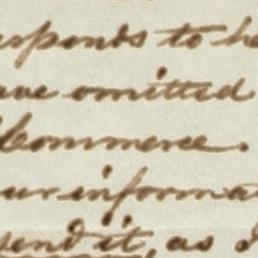 esponds to he
ave omitted
Commerce.
ur informa
send it, as I